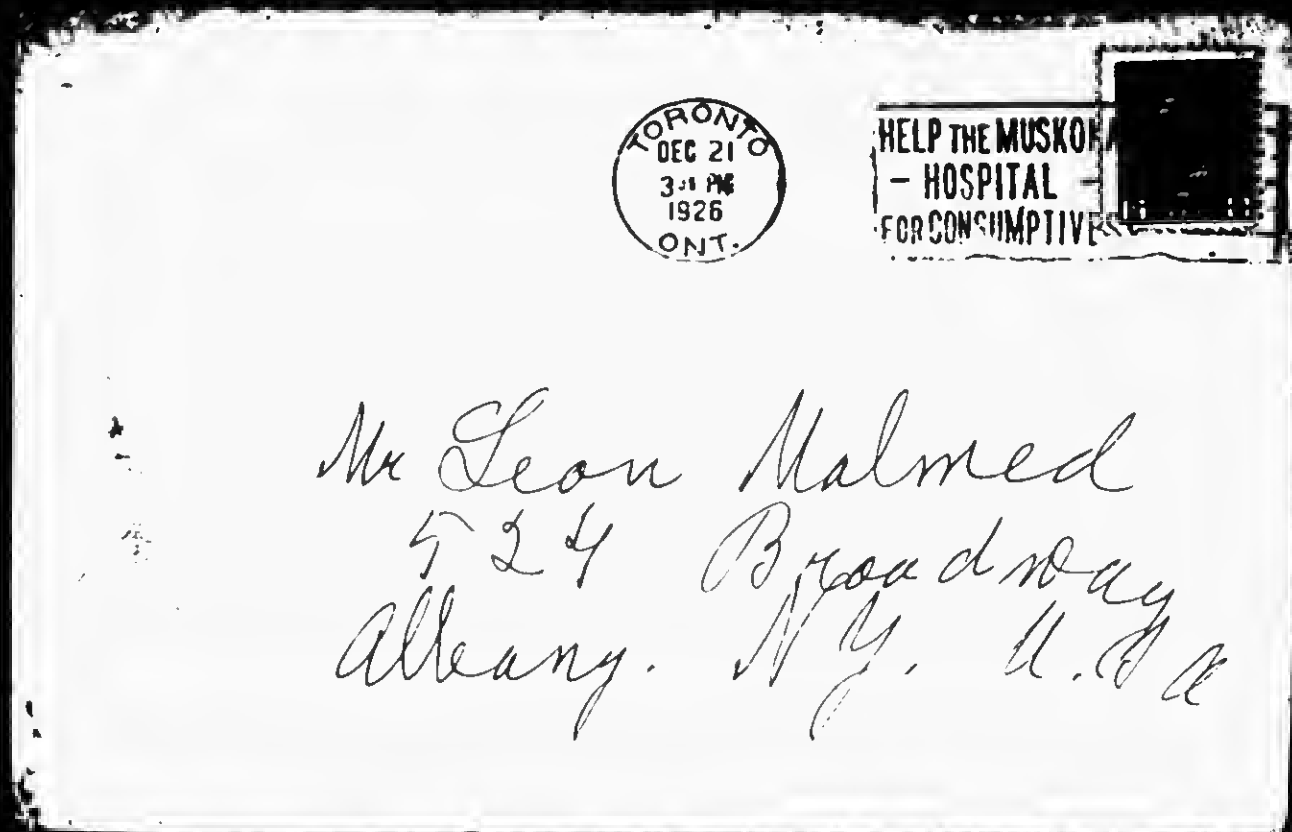 TORONTO
DEC 21
PM
1926
ONT.
HELP THE MUSKOKA
- HOSPITAL -
FOR CONSUMPTIVES
Mr Leon Malmed
524 Broadway
Albany. N.Y. U.S.A